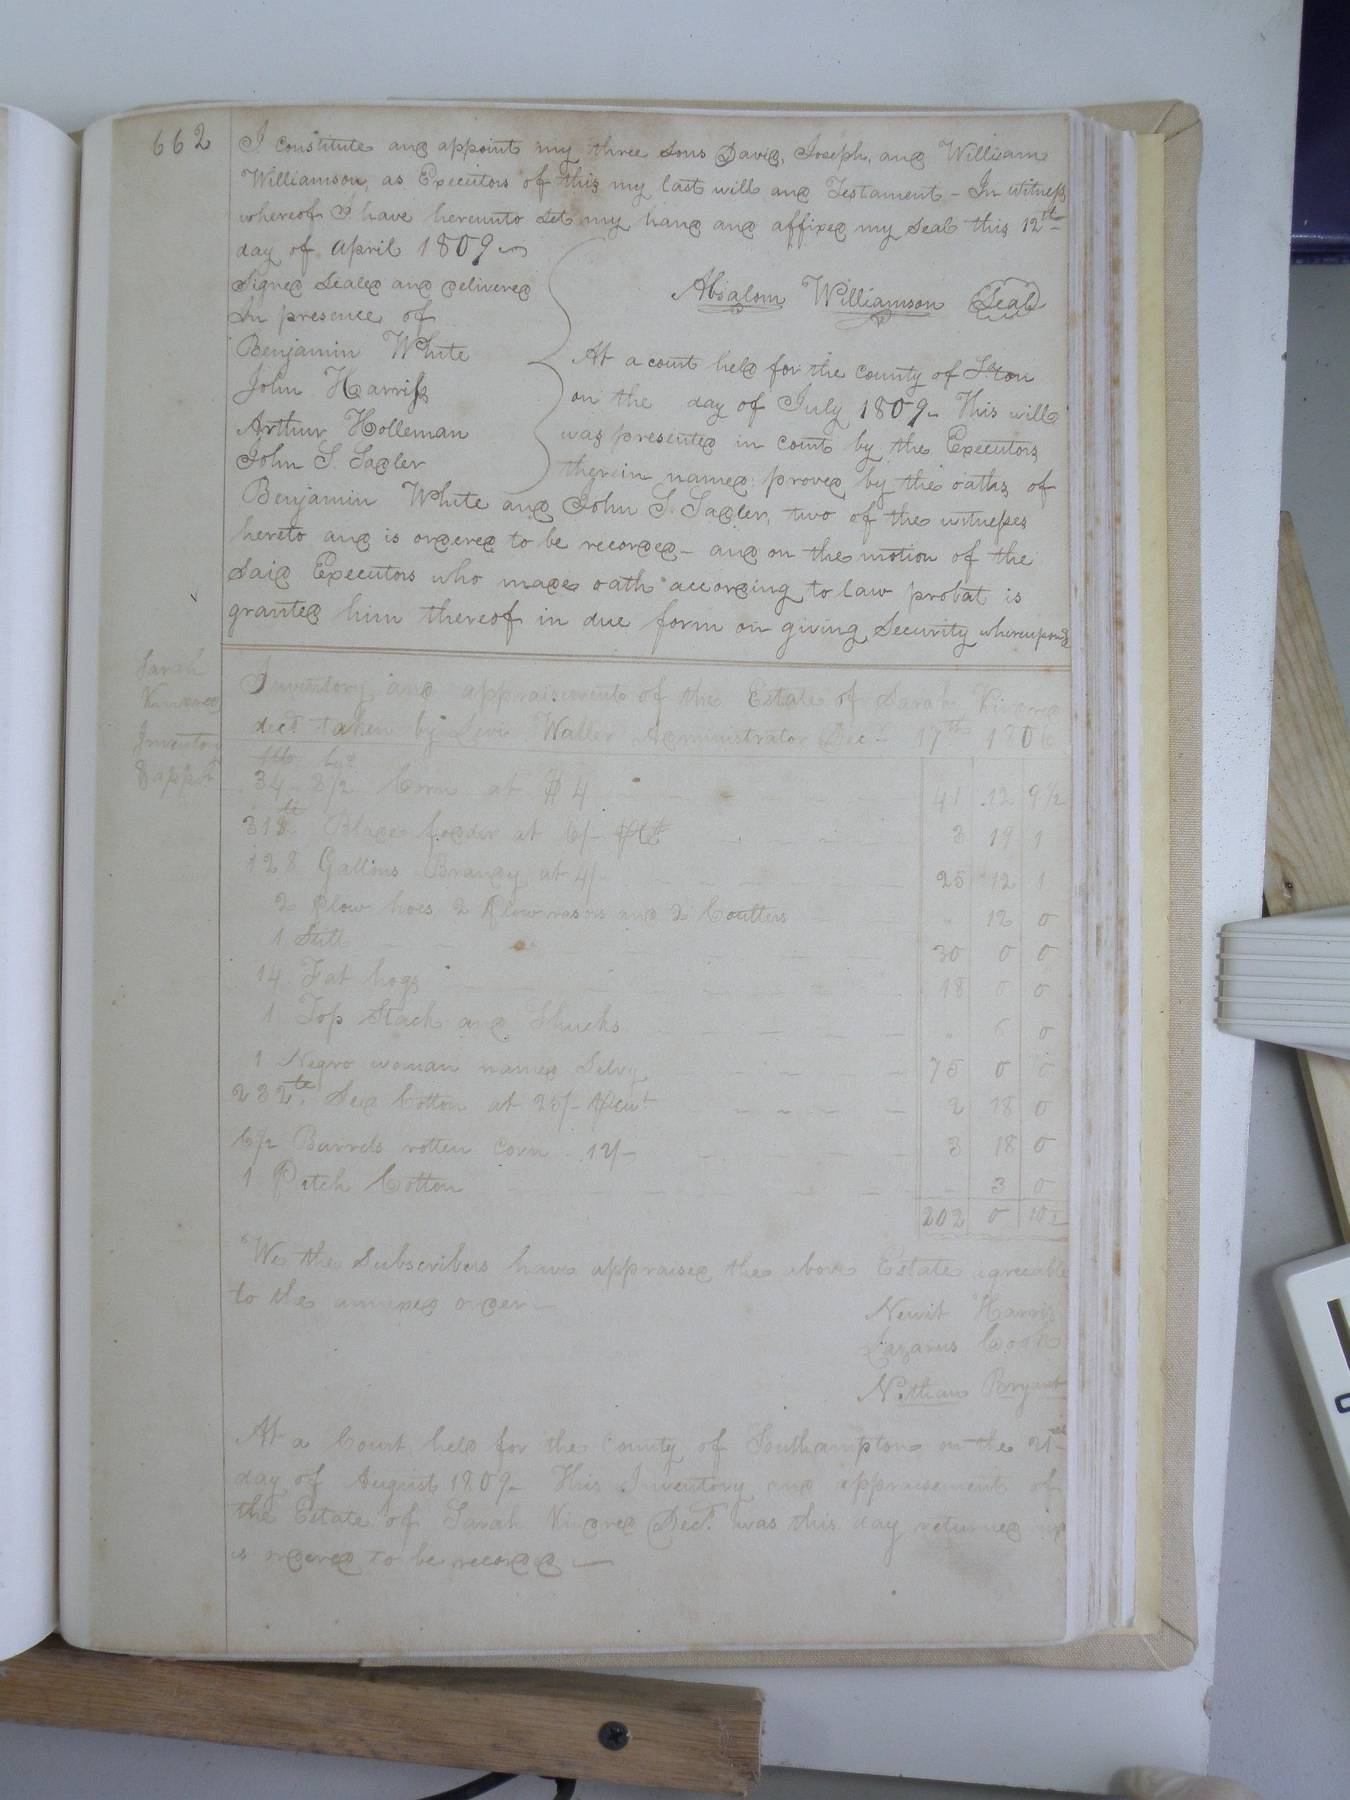 662
I constitute and appoint my three sons David, Joseph, and William
Williamson, as Executors of this my last will and Testament - In witness
whereof I have hereunto set my hand and affixed my seal this 12th
day of april 1809
Signed Sealed and delivered
In presence of
Absalom Williamson Seal
Benjamin White
John Harriss
Arthur Holleman
John S. Sadler
At a court held for the county of S.ton
on the day of July 1809. This will
was presented in court by the Executors
therein named proved by the oaths of
Benjamin White and John S. Sadler, two of the witnesses
hereto and is ordered to be recorded - and on the motion of the
Said Executors who made oath according to law probat is
granted him thereof in due form on giving Security whereupon
Sarah
Kindred
Inventory
& appst
Inventory and appraisement of the Estate of Sarah Kindred
decd taken by Levi Waller Administrator Decr 17th 1806
34 8/2 Corn at $ 4 41 12 9½
318 lb Blade fodder at 6/- 3 19 1
128 Gallons Brandy at 4/- 25 12 1
2 Plow hoes 2 Plow and 2 Coulters " 12 0
1 Still 30 0 0
14 Fat hogs 18 0 0
1 Top Stack and Shucks " 6 0
1 Negro woman named Silvy 75 0 0
232 lb. Seed Cotton at 25/- 2 18 0
6/2 Barrels rotten corn 12/- 3 18 0
1 Patch Cotton 3 0
202 0
We the Subscribers have appraised the above Estate agreeable
to the annexed order -
Newit Harris
Lazarus Cook
Nathan Bryant
At a Court held for the county of Southampton on the 21st
day of August 1809. This Inventory and appraisement of
the Estate of Sarah Kindred Decd. was this day returned and
is ordered to be recorded -